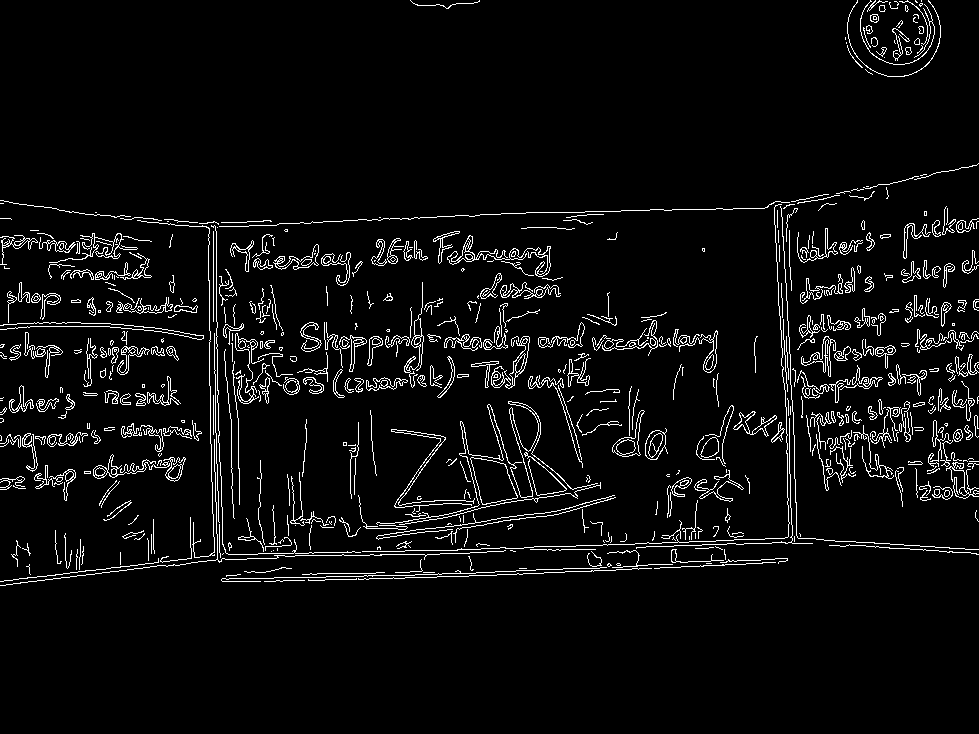 permarket
market
shop - s. z zabawkami
kshop - księgarnia
tcher's - rzeźnik
engrocer's - warzywniak
oe shop - obuwniczy
Tuesday, 26th February
Lesson
Topic: Shopping - reading and vocabulary
03 (czwartek) - Test unit 4
ZHR
da dxxx
jest
baker's - piekar
chemist's - sklep ch
clothes shop - sklep z o
computer shop - skle
music shop - sklep
newsagent's - kiosk
pet shop - sklep
zoolo